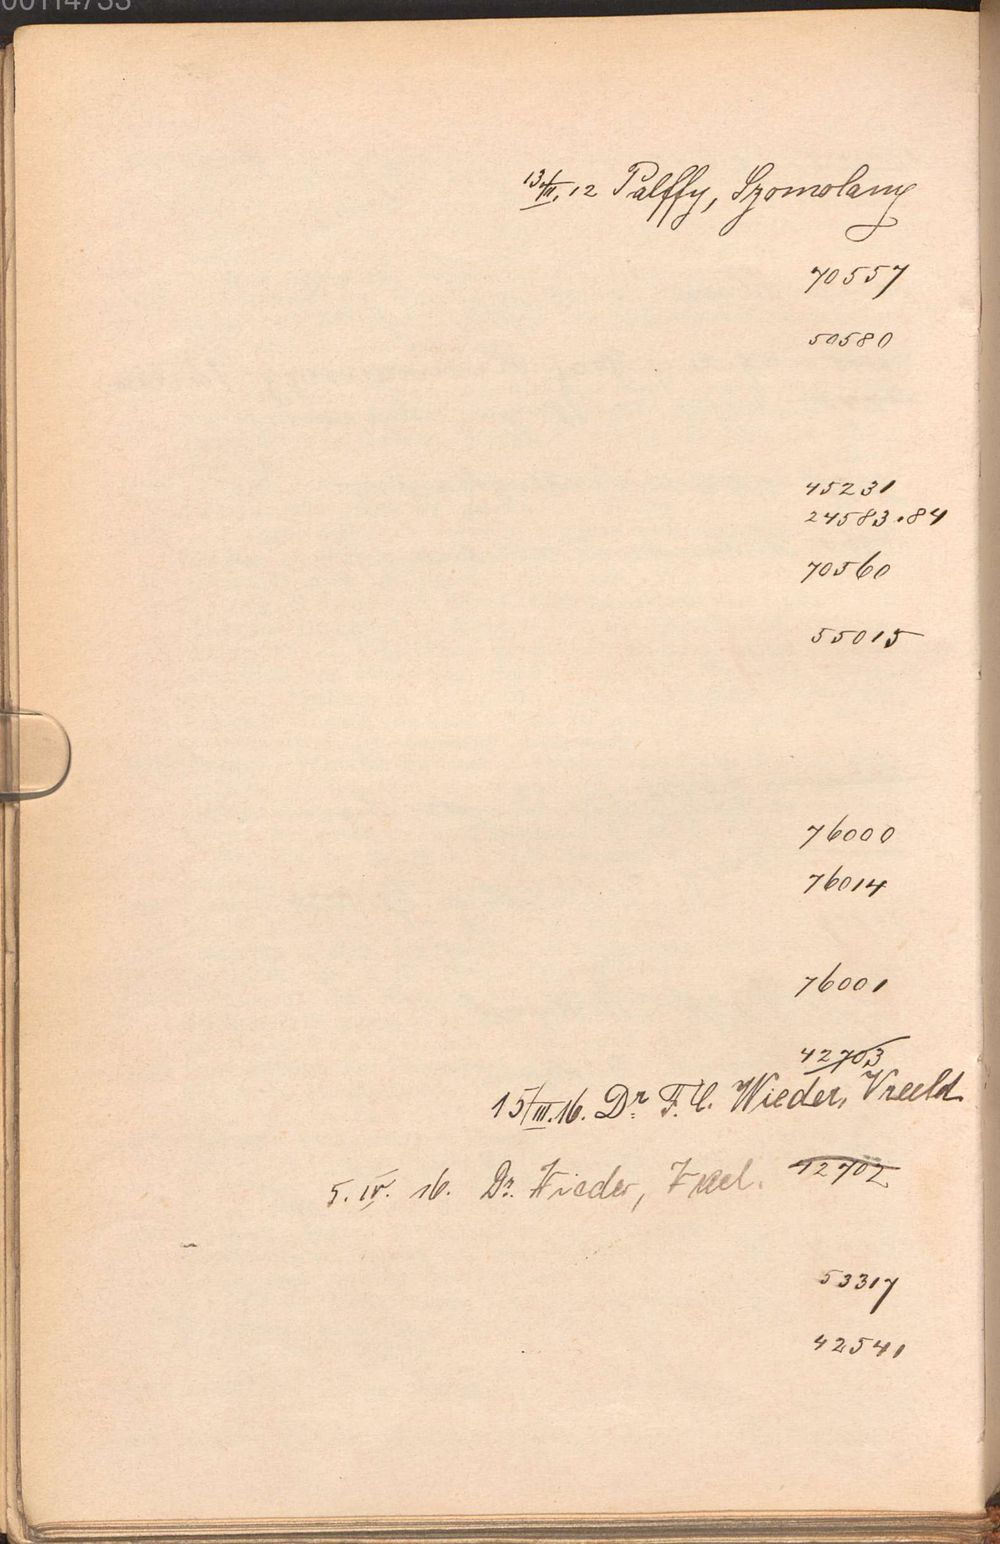 00114733
13/III.12 Palffy, Szomolany
70557
50580
45231
24583.84
70560
55015
76000
76014
76001
42703
15/III.16. Dr. F. C. Wieder,
5. IV. 16. Dr. Wieder, 42702
53317
42541